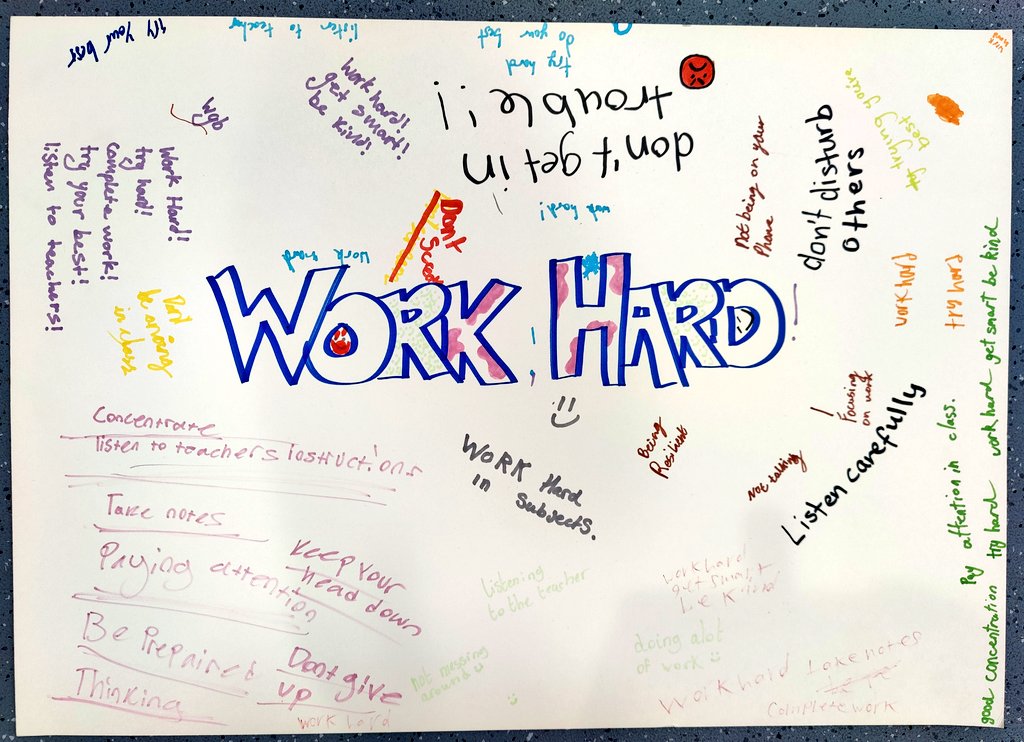 try your best
listen to teacher
do you best
try hard
work hard!!
get smart!
be kind!
don't get in
trouble!!
wgb
Work Hard!
try hard!
complete work!
try your best!
listen to teachers!
Dont
work hard!
work hard
Not being on your
Phone
don't disturb
others
best
work hard
try hard
in class
WORK HARD!
Concentrate
listen to teachers instructions
Take notes
Paying attention
Keep your
head down
Be Prepaired
Thinking
Dont give
up
WORK Hard
in subjects.
Being
Resilient
Focusing
on work
Not talking
Listen carefully
listening
to the teacher
work hard
get smart
doing alot
of work
not messing
around
Work hard
complete work
good concentration Pay attention in class.
try hard work hard get smart be kind